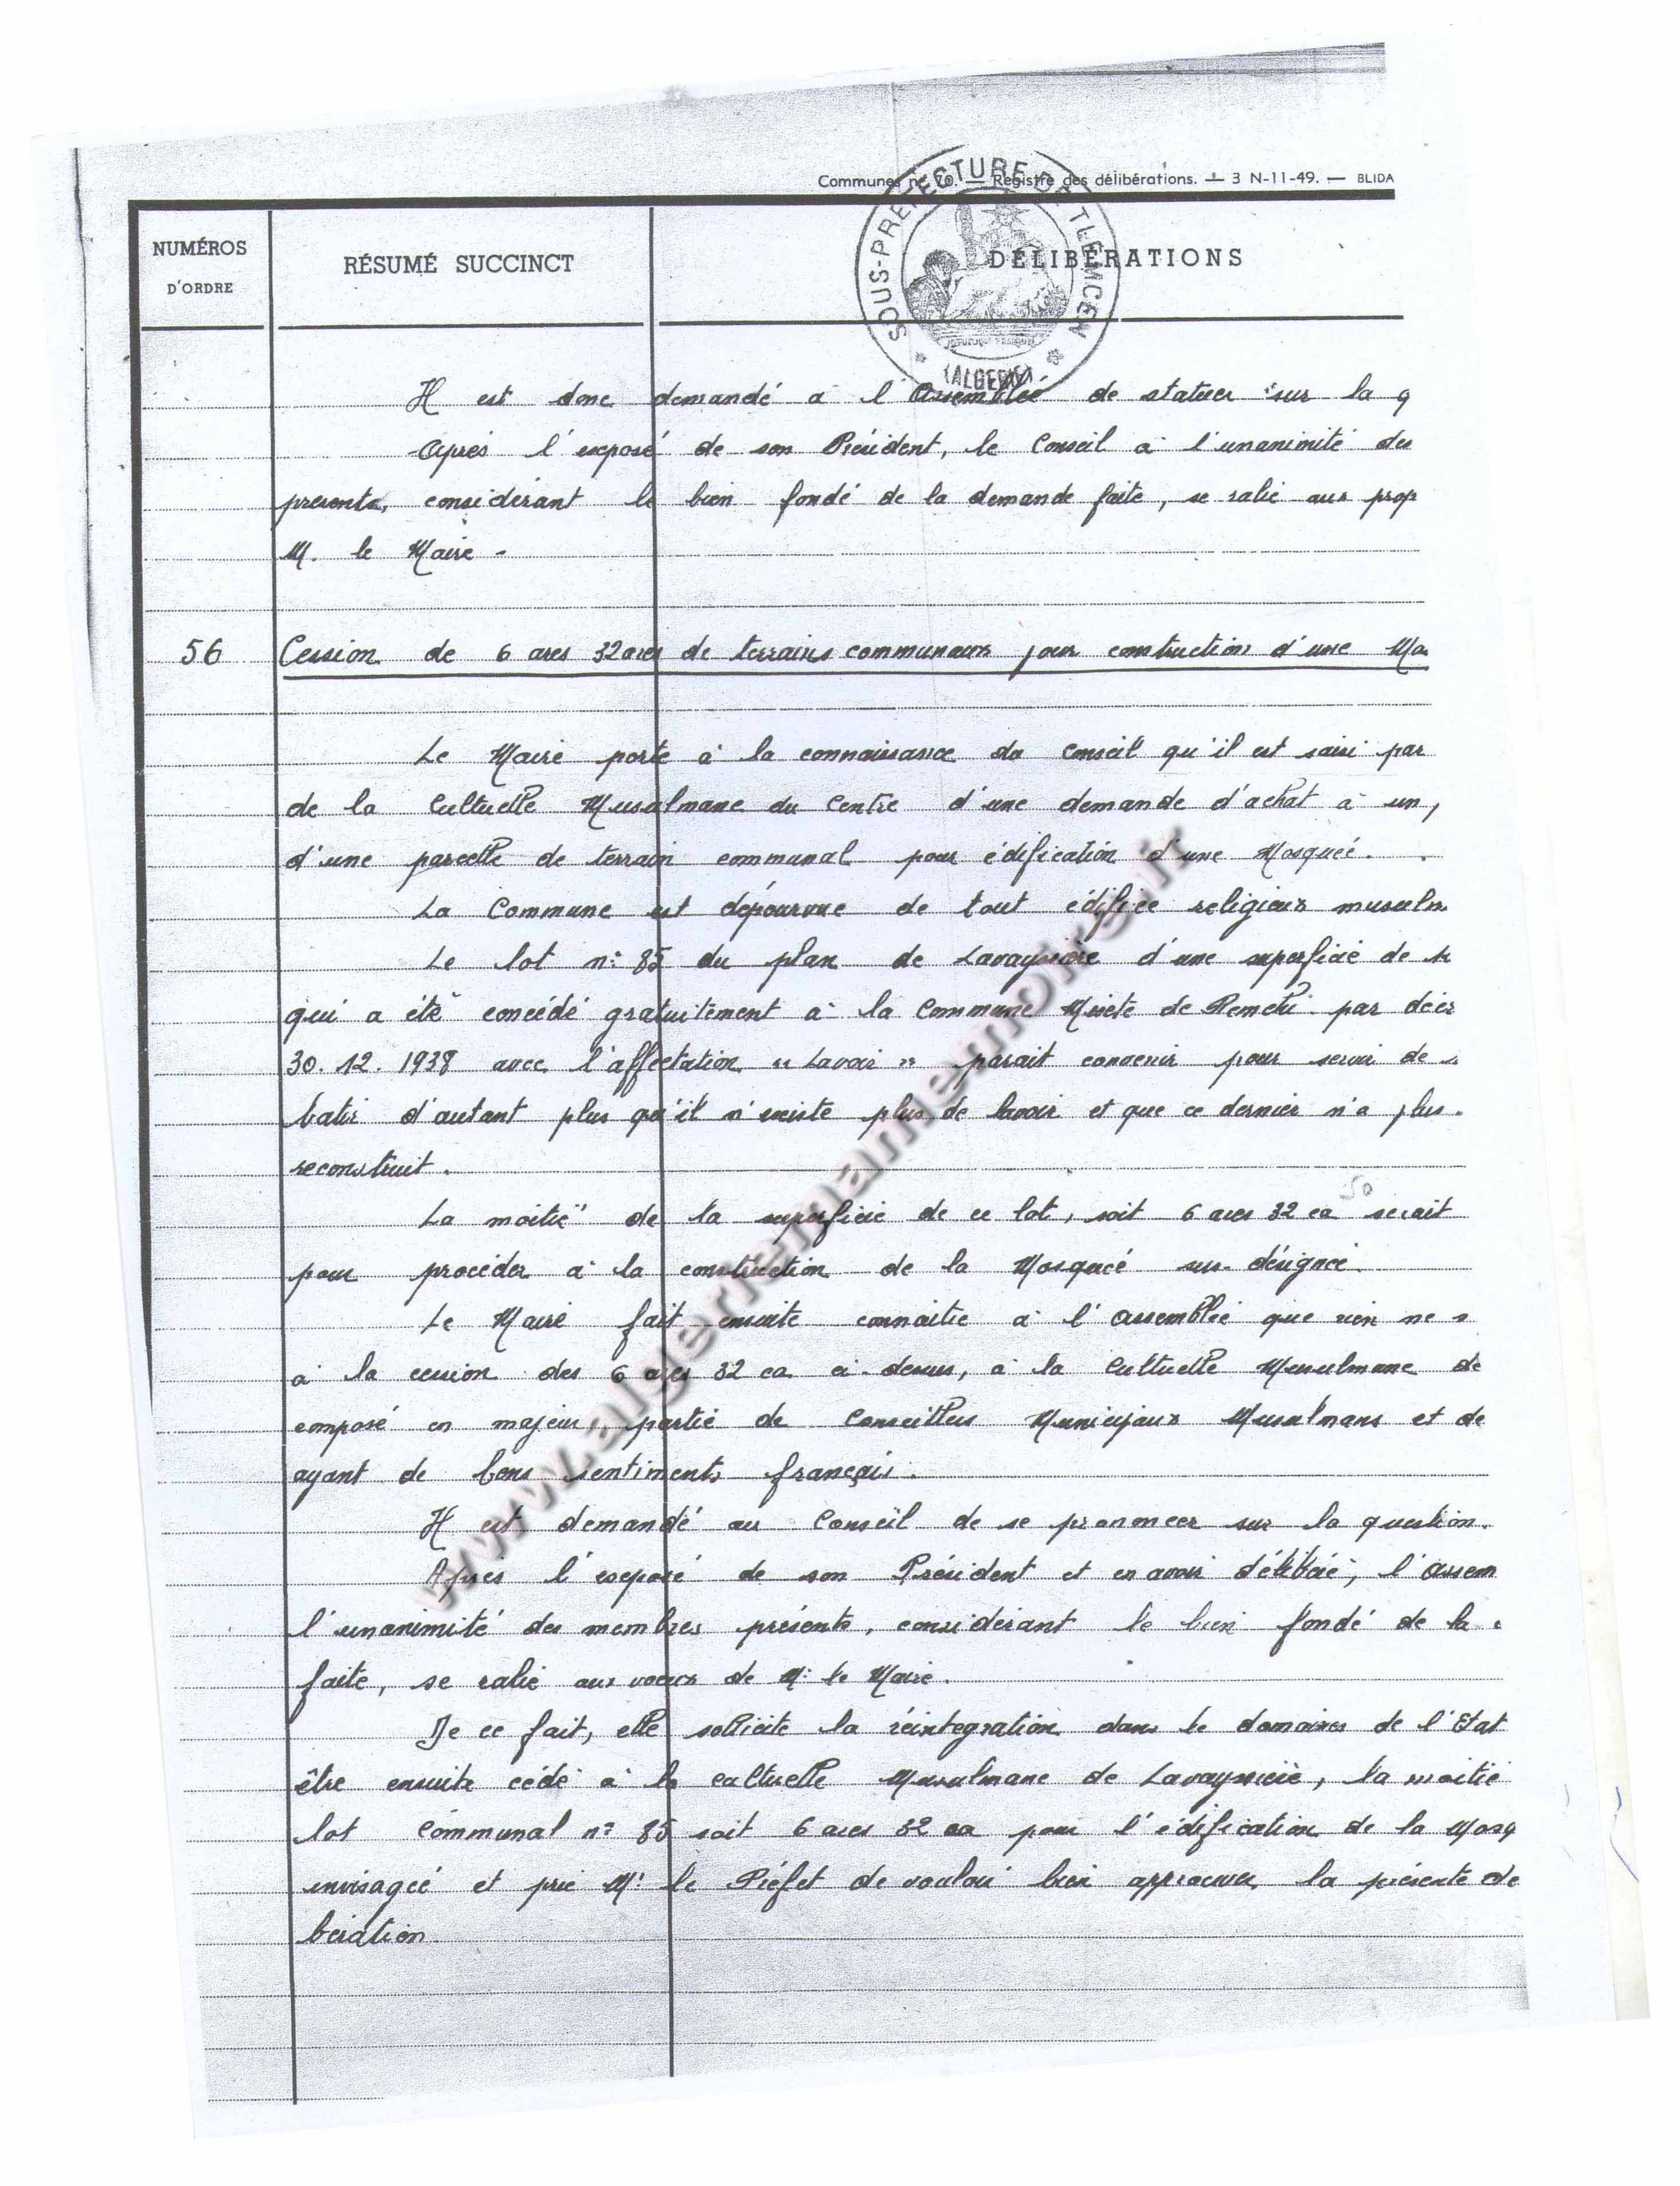 Communes n° 70. — Registre des délibérations. — 3 N-11-49. — BLIDA
SOUS-PRÉFECTURE DE TLEMCEN
(ALGERIE)
NUMÉROS
D'ORDRE
RÉSUMÉ SUCCINCT
DÉLIBÉRATIONS
Il est donc demandé à l'Assemblée de statuer sur la q
Après l'exposé de son Président, le Conseil à l'unanimité des
présents, considérant le bien fondé de la demande faite, se ralie aux prop
M. le Maire -
56 Cession de 6 ares 32 ares de terrains communaux pour contruction d'une Mo
Le Maire porte à la connaissance du Conseil qu'il est saisi par
de la Cultuelle Musulmane du Centre d'une demande d'achat à un
d'une parcelle de terrain communal pour édification d'une Mosquée.
La Commune est dépourvue de tout édifice religieux musulm
Le lot n° 85 du plan de Lavayssière d'une superficie de
qui a été concédé gratuitement à la Commune Mixte de Remchi par décr
30.12.1938 avec l'affectation "Lavoir" parait convenir pour servir de
batir d'autant plus qu'il n'existe plus de lavoir et que ce dernier n'a plus
reconstruit.
50
La moitié de la superficie de ce lot, soit 6 ares 32 ca serait
pour procéder à la construction de la Mosquée sus-désignée.
Le Maire fait ensuite connaitre à l'assemblée que rien ne s
à la cession des 6 ares 32 ca ci-dessus, à la Cultuelle Musulmane de
composé en majeure partie de Conseillers Municipaux Musulmans et de
ayant de bons sentiments français.
Il est demandé au Conseil de se prononcer sur la question.
Après l'exposé de son Président et en avoir délibéré, l'assem
l'unanimité des membres présents, considérant le bien fondé de la
faite, se ralie aux voeux de Mr le Maire.
De ce fait, elle sollicite la réintegration dans le domaines de l'Etat
être ensuite cédé à la cultuelle Musulmane de Lavayssière, la moitié
lot Communal n° 85 soit 6 ares 32 ca pour l'édification de la Mosq
envisagée et prie Mr le Préfet de vouloir bien approuver la présente dé
bération.
www.algerriemannemoirs.fr